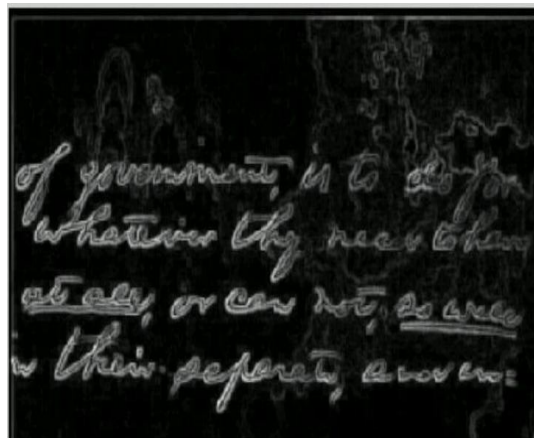 of government, is to do for
whatever they need to have
at all, or can not, so well
in their separate, and